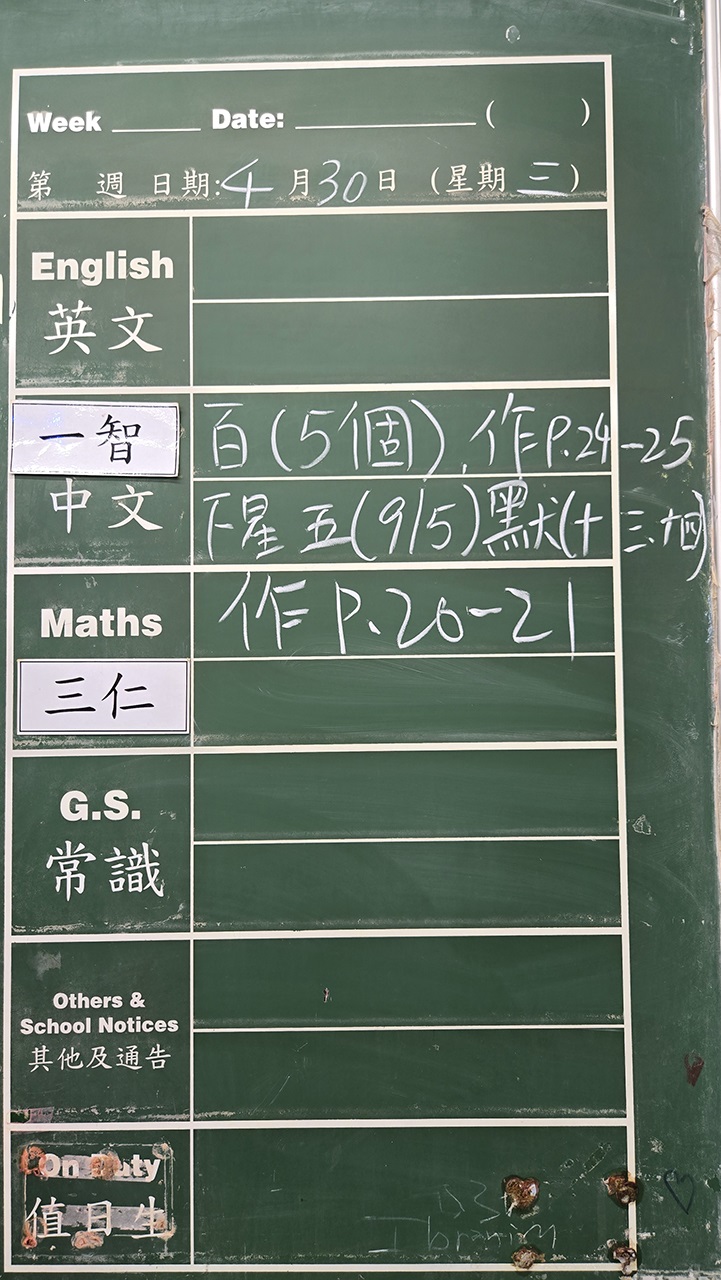 Week ____ Date: ________ ( )
第 週 日期:4月30日 (星期三)
English
英文
一智
百(5個), 作P.24-25
中文
下星五(9/5)默(十三、十四)
Maths
作P.20-21
三仁
G.S.
常識
Others &
School Notices
其他及通告
On Duty
值日生